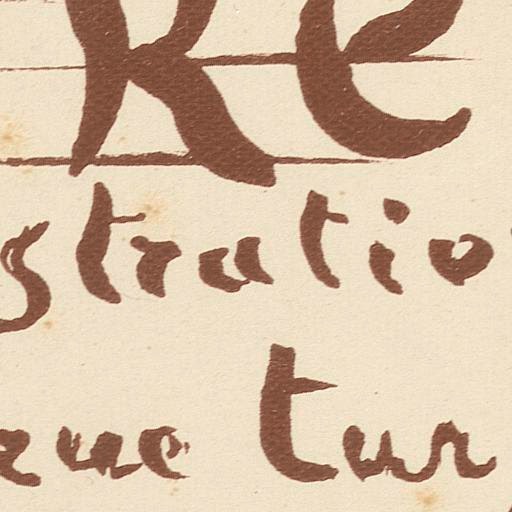 Re
stratio
que tur